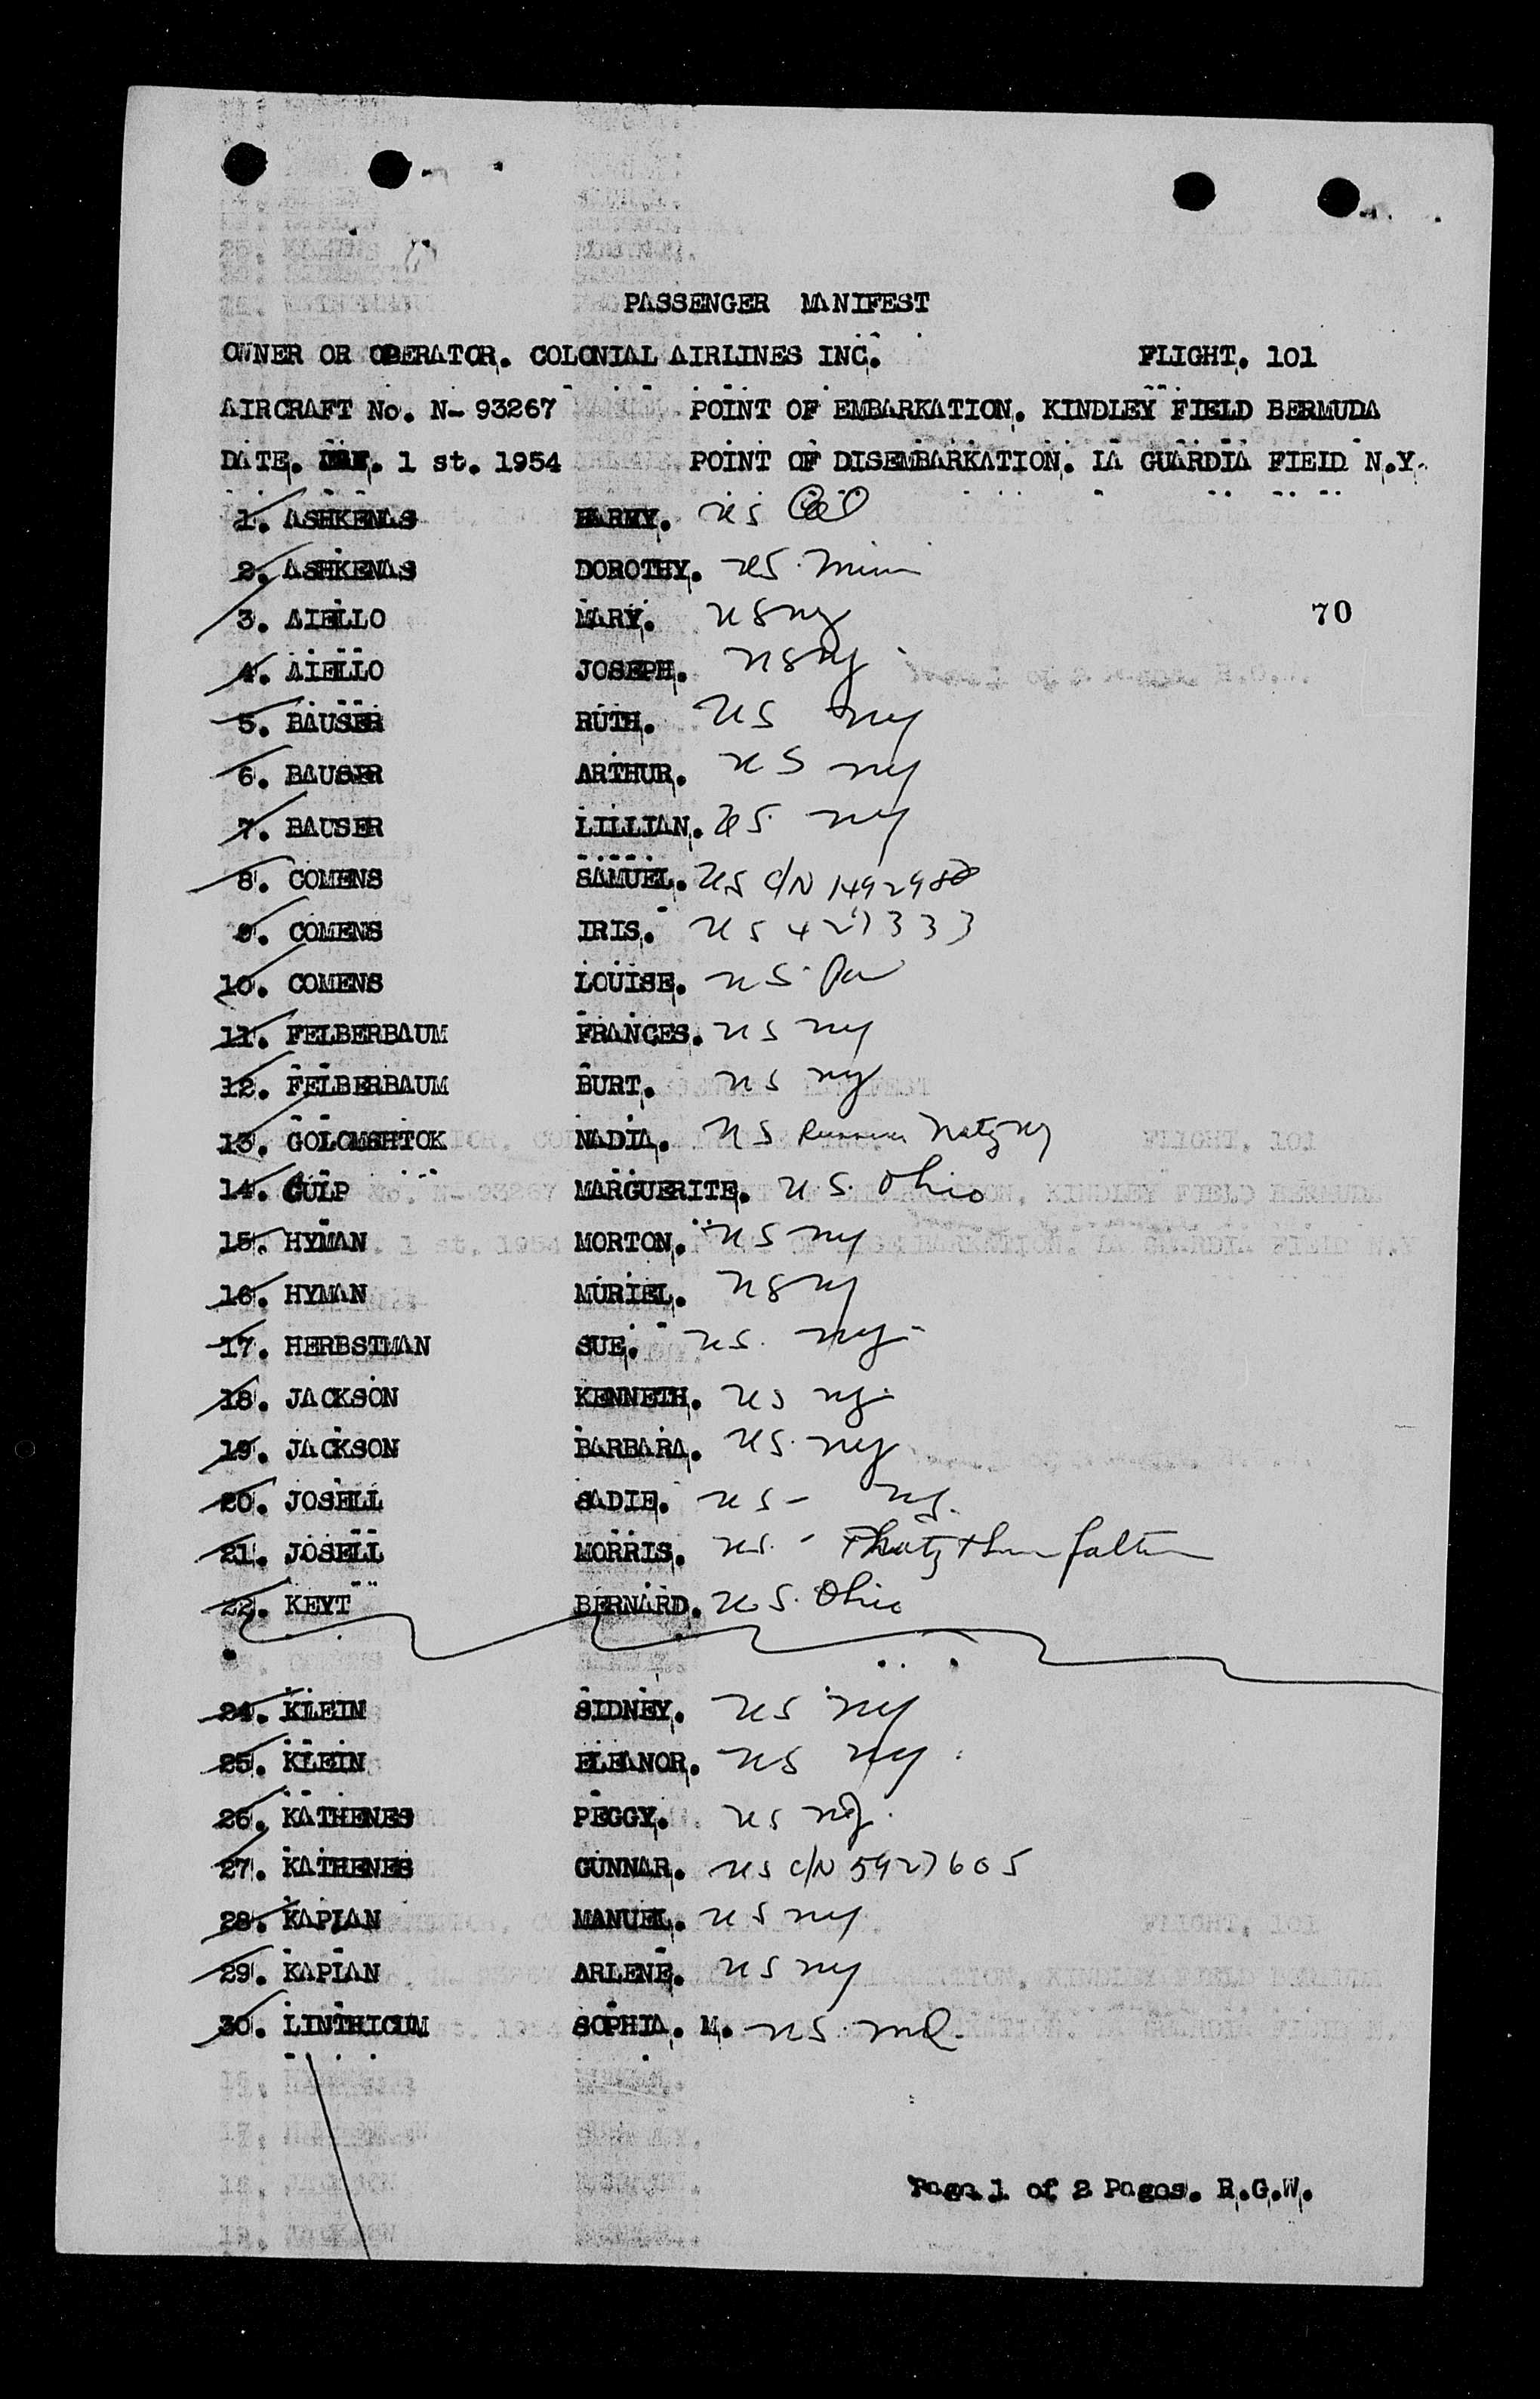 PASSENGER MANIFEST
OWNER OR OPERATOR. COLONIAL AIRLINES INC. FLIGHT. 101
AIRCRAFT No. N- 93267 POINT OF EMBARKATION. KINDLEY FIELD BERMUDA
DATE. 1 st. 1954 POINT OF DISEMBARKATION. LA GUARDIA FIELD N.Y.
1. ASHKENAS HARRY. US
2. ASHKENAS DOROTHY. US. Minn
3. AIELLO MARY. US NY
70
4. AIELLO JOSEPH. US NY
5. BAUSER RUTH. US NY
6. BAUSER ARTHUR. US NY
7. BAUSER LILLIAN. US. NY
8. COMENS SAMUEL. US C/N 1492980
9. COMENS IRIS. US 427333
10. COMENS LOUISE. US. Pa
11. FELBERBAUM FRANCES. US NY
12. FELBERBAUM BURT. US NY
13. GOLOMSHTOK NADIA. US Russian Natz NY
14. CULP MARGUERITE. U.S. Ohio
15. HYMAN MORTON. US NY
16. HYMAN MURIEL. US NY
17. HERBSTMAN SUE. US. NY
18. JACKSON KENNETH. US NY
19. JACKSON BARBARA. US. NY
20. JOSELL SADIE. US - NJ.
21. JOSELL MORRIS. US. - father
22. KEYT BERNARD. U.S. Ohio
24. KLEIN SIDNEY. US NY
25. KLEIN ELEANOR. US NY
26. KATHENES PEGGY. US NJ.
27. KATHENES GUNNAR. US C/N 5927605
28. KAPLAN MANUEL. US NY
29. KAPLAN ARLENE. US NY
30. LINTHICUM SOPHIA. M. US. Md.
Page 1 of 2 Pages. R.G.W.